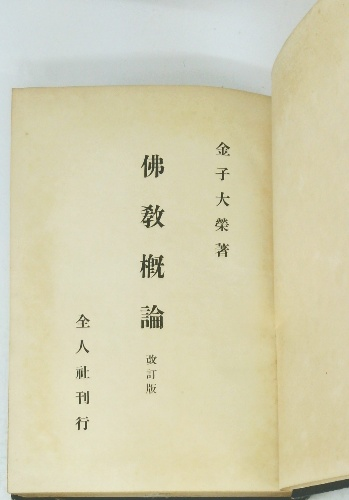 金子大榮著
佛教概論 改訂版
全人社刊行